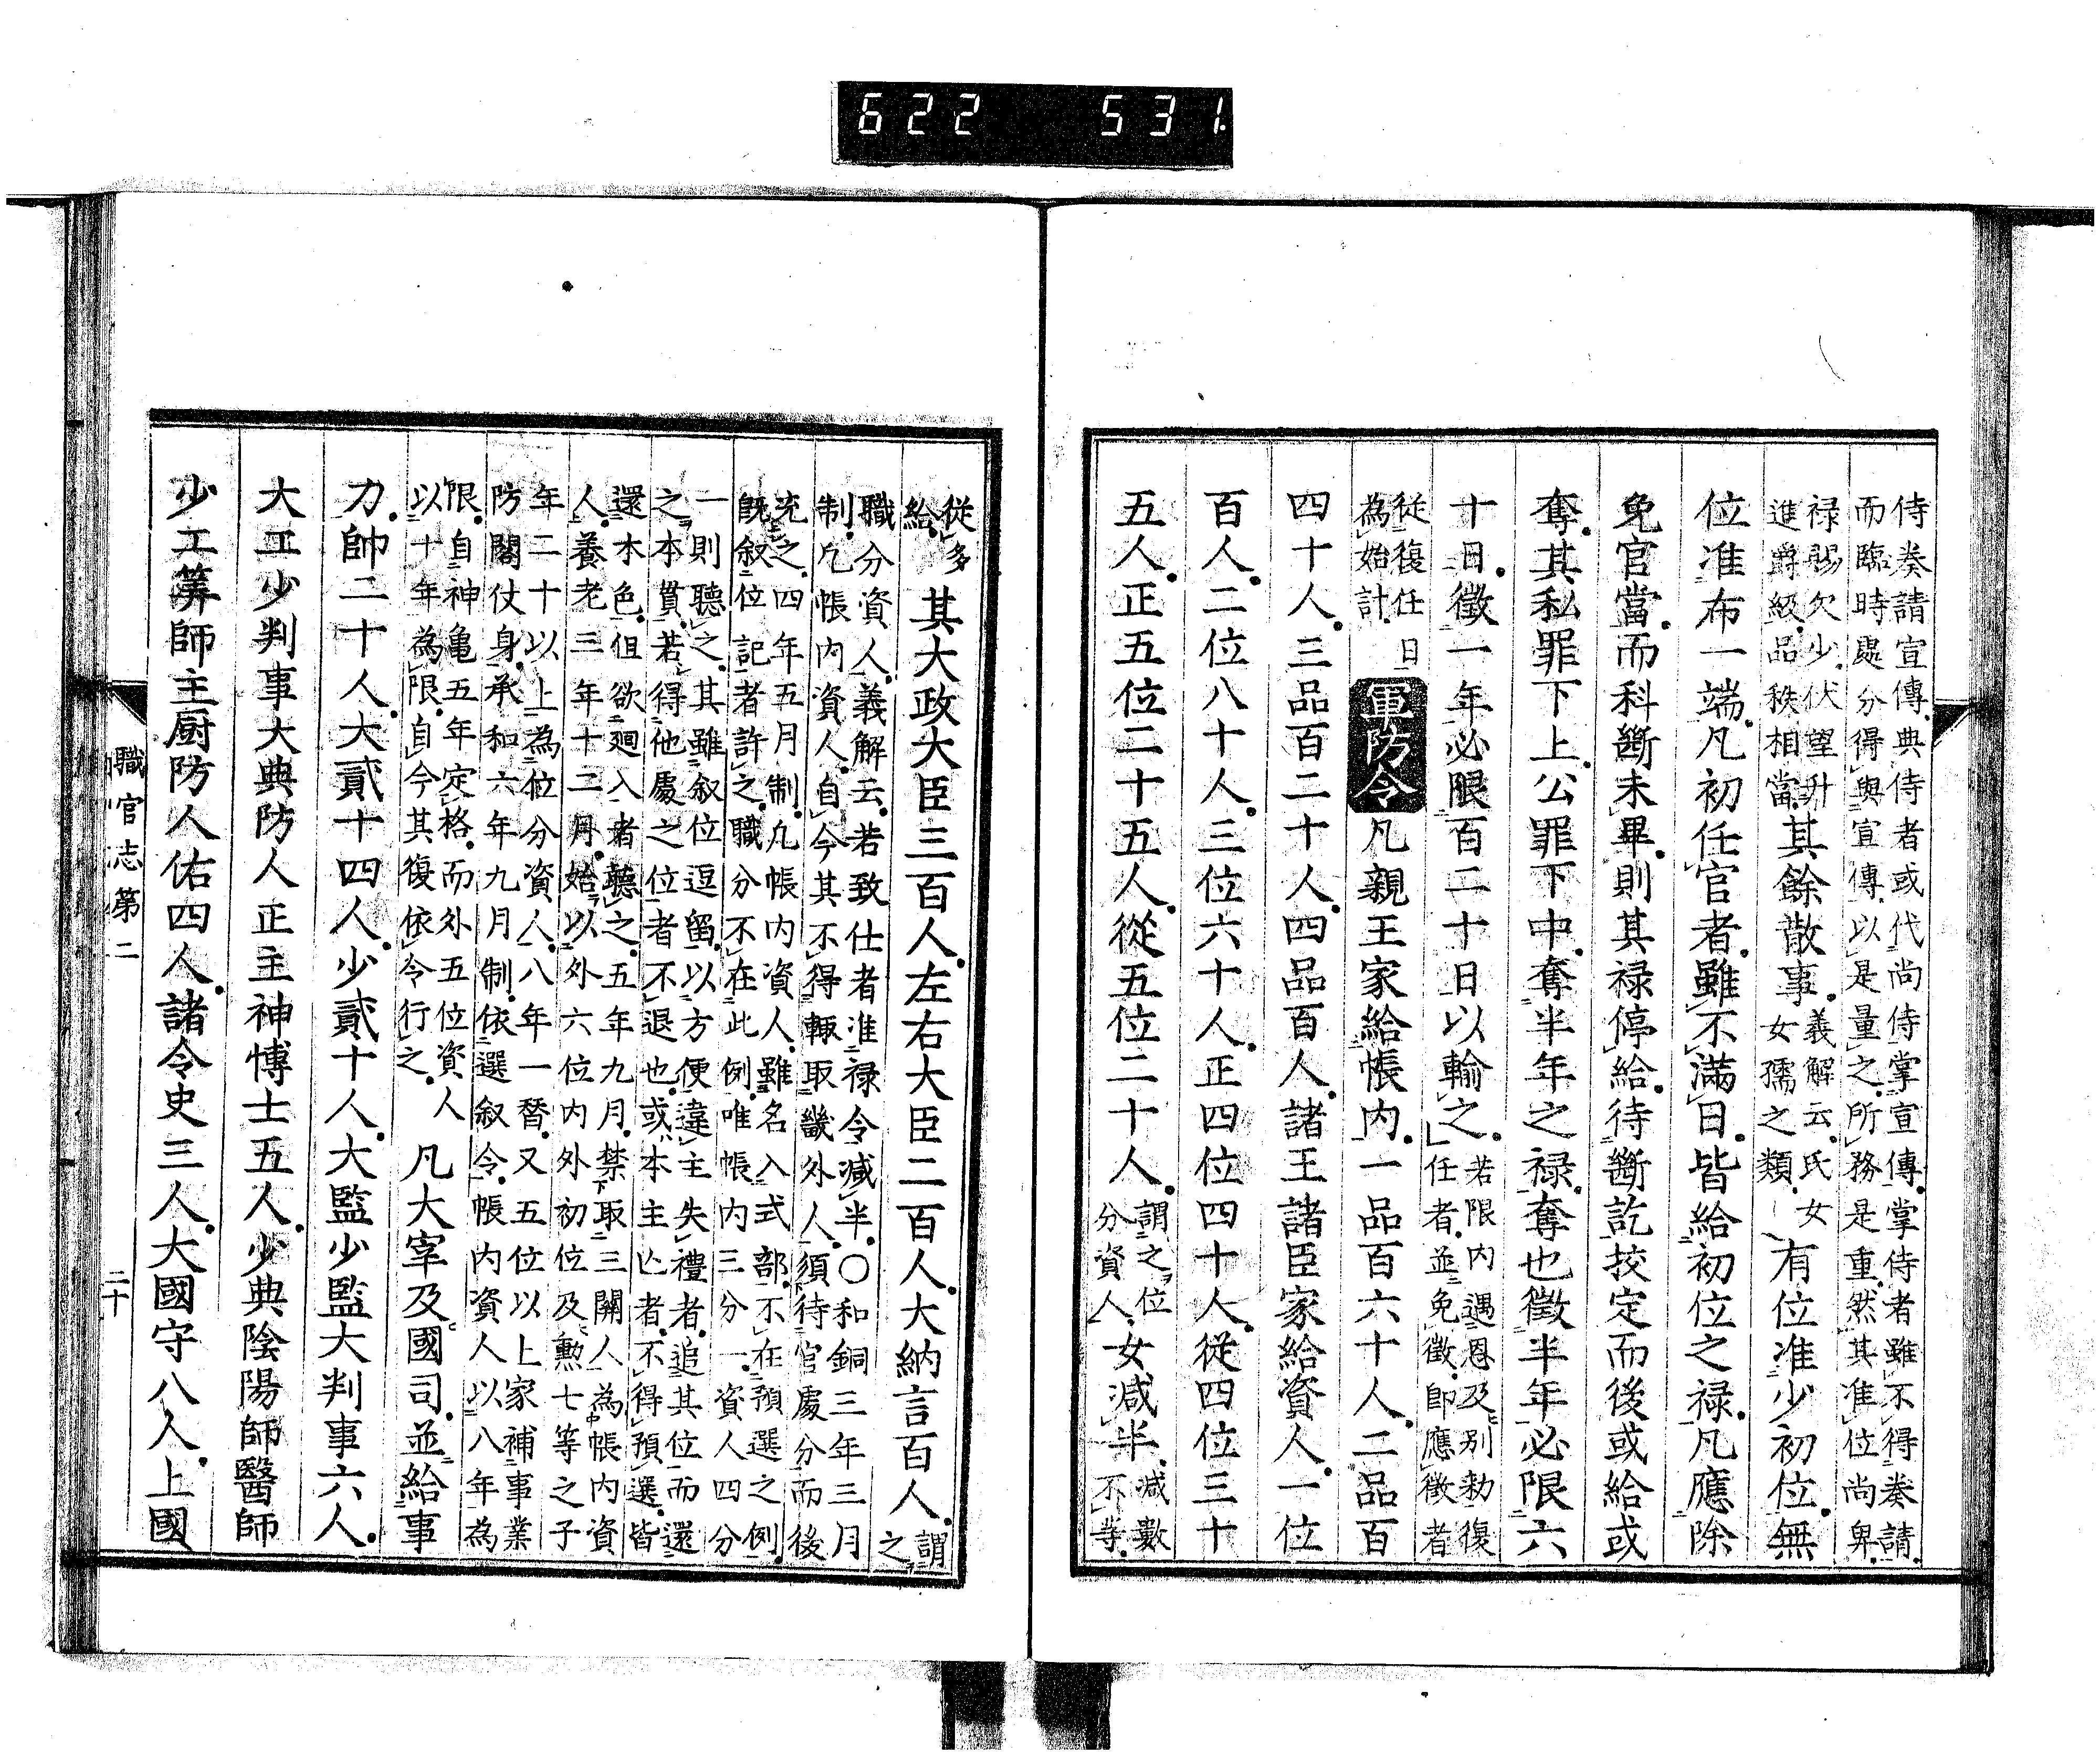 622 531
侍奏請宣傳。典侍者或代尚侍掌宣傳。掌侍者雖不得奏請。
而臨時處分得與宣傳。以是量之。所務是重。然其准位尚卑。
禄賜欠少。伏望升
進爵級。品秩相當。其餘散事。義解云。氏女
女孺之類。有位准少初位。無
位准布一端。凡初任官者。雖不滿日。皆給初位之禄。凡應除
免官當。而科斷未畢。則其禄停給。待斷訖挍定而後或給或
奪。其私罪下上。公罪下中。奪半年之禄。奪也徵半年必限六
十日。徵一年必限百二十日以輸之。若限内遇恩及别勅復
任者。並免徵。即應徵者
從復任日
為始計。軍防令凡親王家給帳内。一品百六十人。二品百
四十人。三品百二十人。四品百人。諸王諸臣家給資人。一位
百人。二位八十人。三位六十人。正四位四十人。從四位三十
五人。正五位二十五人。從五位二十人。謂之位
分資人。女減半。減數
不等。
從多
給。其大政大臣三百人。左右大臣二百人。大納言百人。謂
之
職分資人。義解云。若致仕者准禄令減半。〇和銅三年三月
制。凡帳内資人。自今其不得輙取畿外人。須待官處分而後
充之。四年五月制。凡帳内資人。雖名入式部。不在預選之例。
既叙位記者許之。職分不在此例。唯帳内三分一。資人四分
一則聽之。其雖叙位逗留。以方便違主失禮者。追其位而還
之本貫。若得他處之位者不退也。或本主亡者。不得預選。皆
還本色。但欲廻入者聽之。五年九月。禁取三關人為帳内資
人。養老三年十二月。始以外六位内外初位及勲七等之子
年二十以上為位分資人。八年一替。又五位以上家補事業
防閤仗身。承和六年九月制。依選叙令。帳内資人以八年為
限。自神亀五年定格。而外五位資人
以十年為限。自今其復依令行之。凡大宰及國司。並給事
力。帥二十人。大貳十四人。少貳十人。大監少監大判事六人。
大工少判事大典防人正主神博士五人。少典陰陽師醫師
少工筭師主厨防人佑四人。諸令史三人。大國守八人。上國
職官志第二
二十